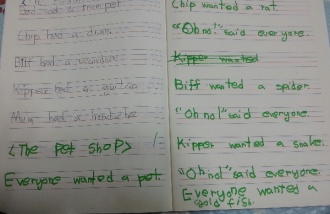 Dad had a trumpet
Chip had a drum.
Biff had a recorder
Kipper had a guitar
Mum had a headache
<The Pet Shop>
Everyone wanted a pet.
Chip wanted a rat.
"Oh no!" said everyone.
Kipper wanted
Biff wanted a spider.
"Oh no!" said everyone.
Kipper wanted a snake.
"Oh no!" said everyone.
Everyone wanted a
gold fish.